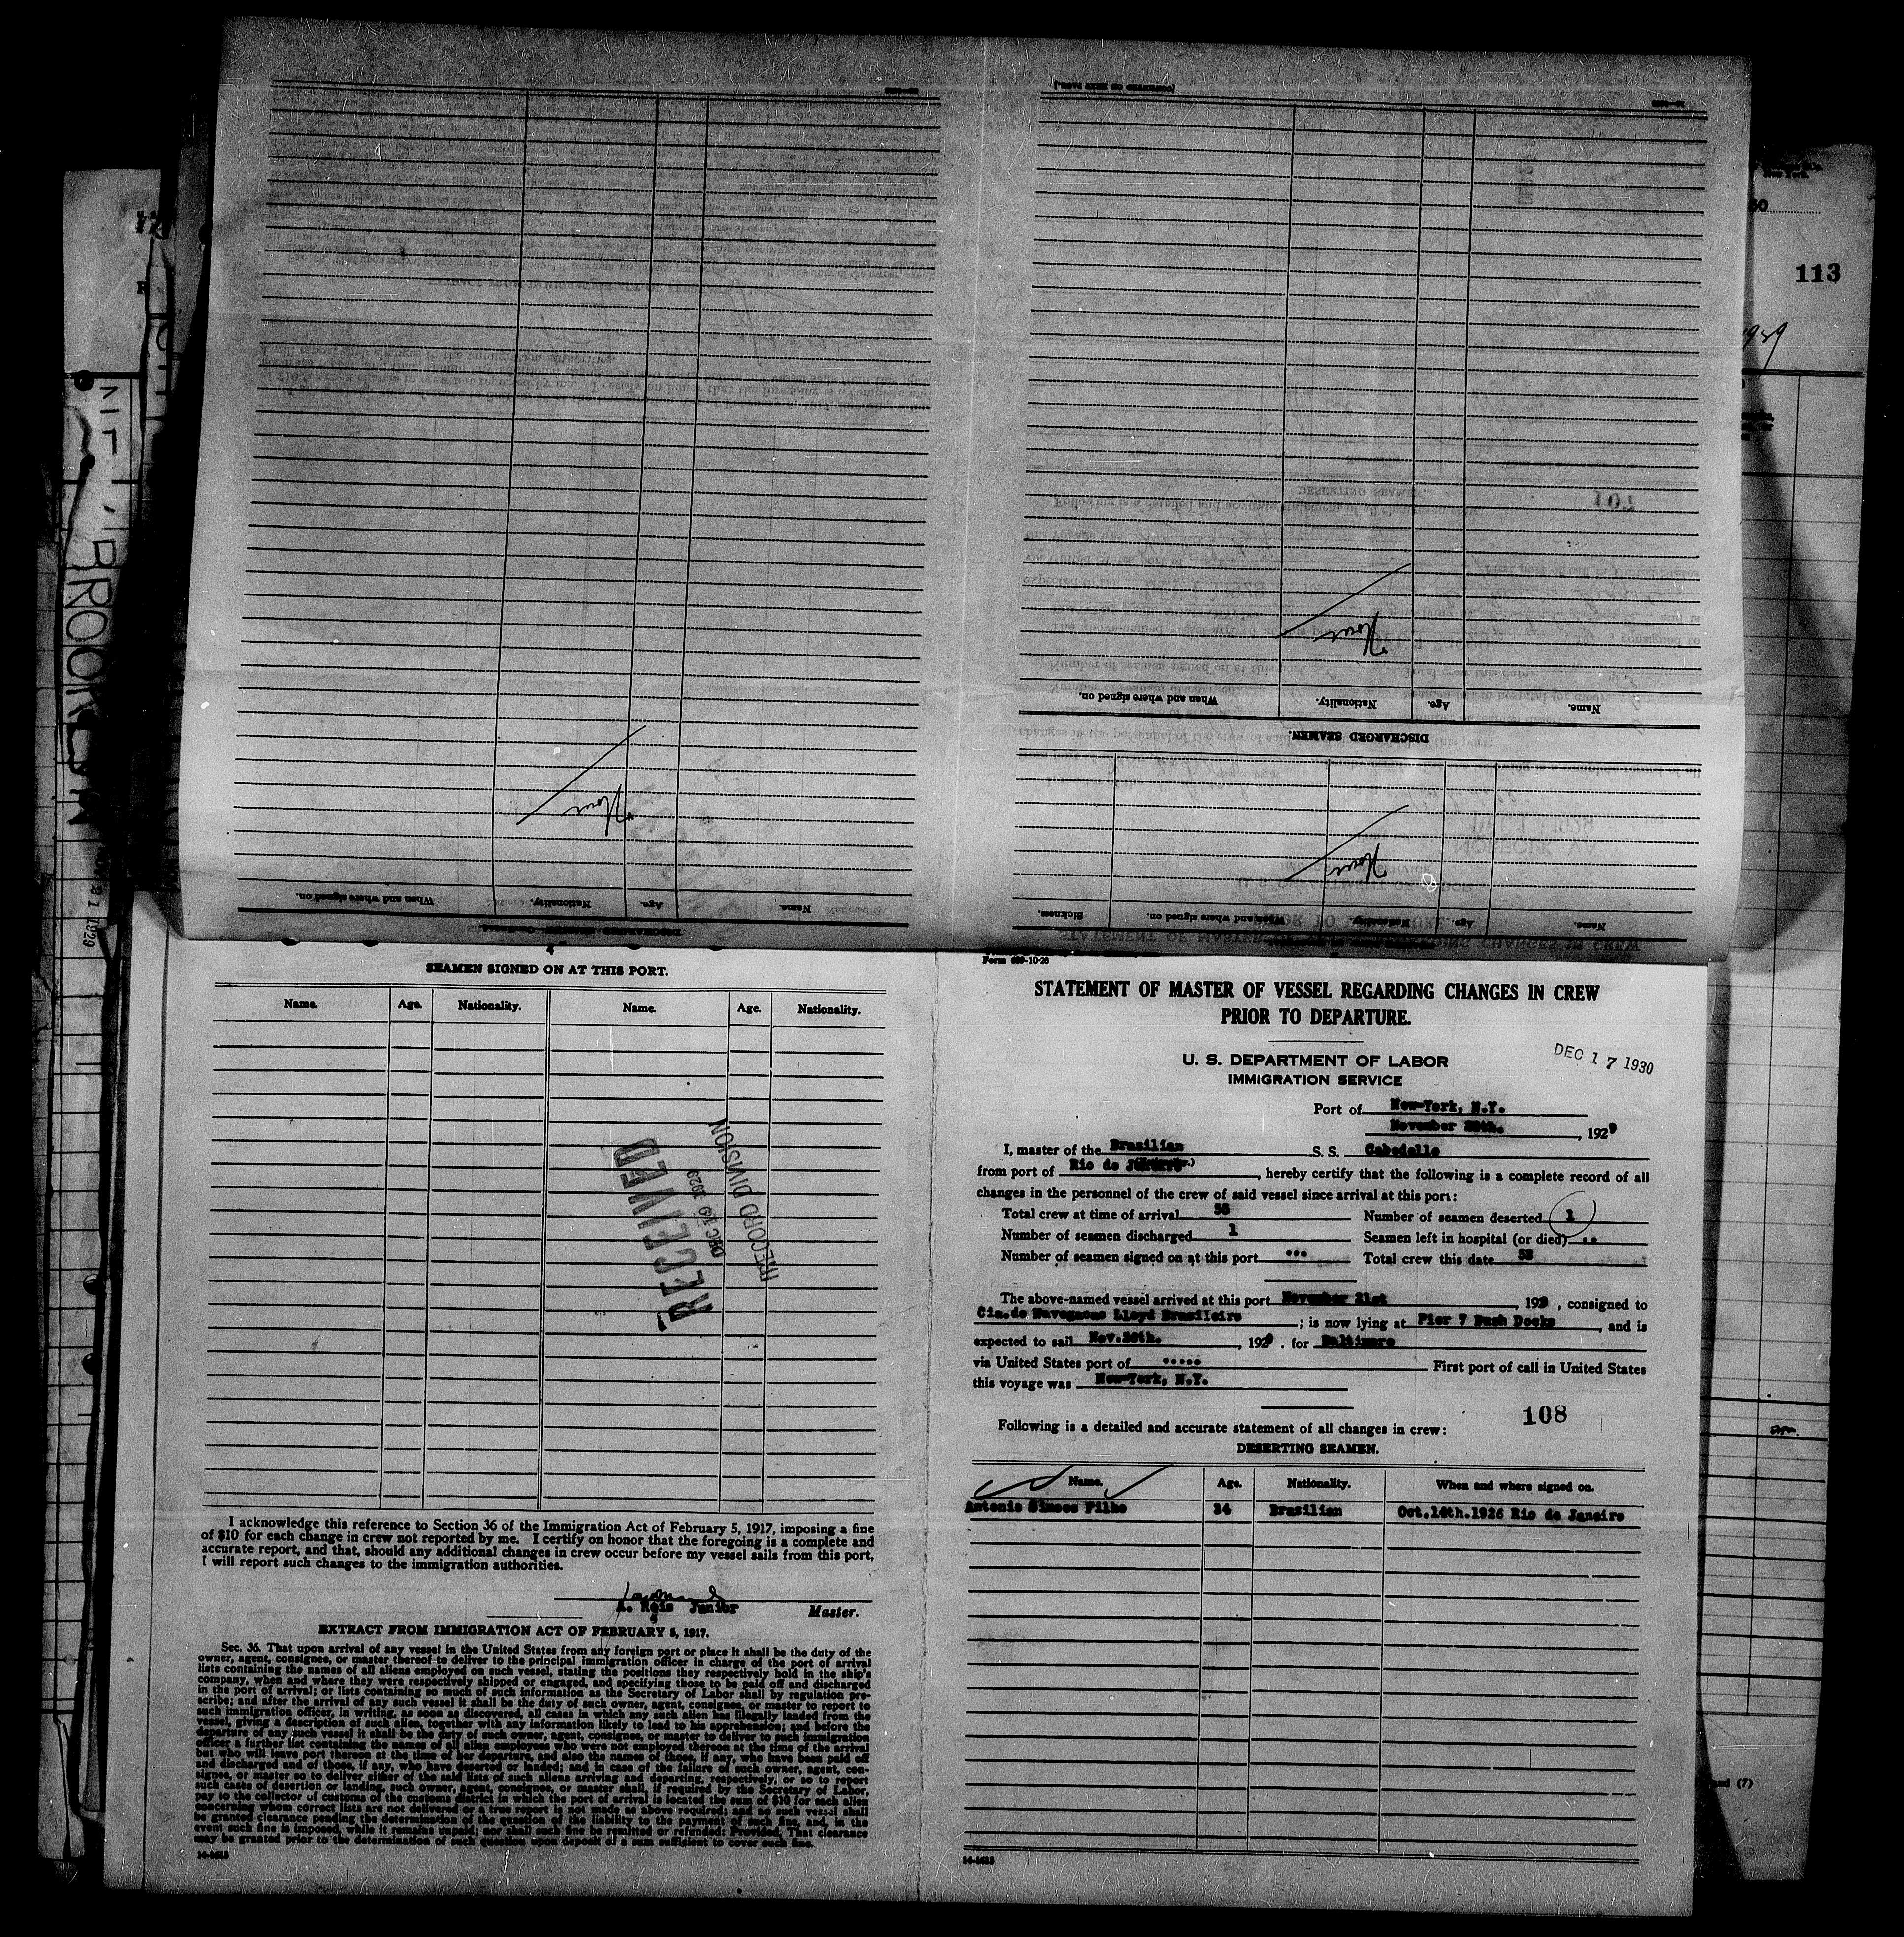 113
DISCHARGED SEAMEN.
Name.
Age.
Nationality.
When and where signed on.
None
Name.
Age.
When and where signed on.
Sickness.
None
Name.
Age.
Nationality.
When and where signed on.
None
BROOKLYN
21 1929
SEAMEN SIGNED ON AT THIS PORT.
Name. Age. Nationality. Name. Age. Nationality.
RECEIVED
DEC 19 1929
RECORD DIVISION
I acknowledge this reference to Section 36 of the Immigration Act of February 5, 1917, imposing a fine
of $10 for each change in crew not reported by me. I certify on honor that the foregoing is a complete and
accurate report, and that, should any additional changes in crew occur before my vessel sails from this port,
I will report such changes to the immigration authorities.
A. Reis Junior Master.
EXTRACT FROM IMMIGRATION ACT OF FEBRUARY 5, 1917.
Sec. 36. That upon arrival of any vessel in the United States from any foreign port or place it shall be the duty of the
owner, agent, consignee, or master thereof to deliver to the principal immigration officer in charge of the port of arrival
lists containing the names of all aliens employed on such vessel, stating the positions they respectively hold in the ship's
company, when and where they were respectively shipped or engaged, and specifying those to be paid off and discharged
in the port of arrival; or lists containing so much of such information as the Secretary of Labor shall by regulation pre-
scribe; and after the arrival of any such vessel it shall be the duty of such owner, agent, consignee, or master to report to
such immigration officer, in writing, as soon as discovered, all cases in which any such alien has illegally landed from the
vessel, giving a description of such alien, together with any information likely to lead to his apprehension; and before the
departure of any such vessel it shall be the duty of such owner, agent, consignee, or master to deliver to such immigration
officer a further list containing the names of all alien employees who were not employed thereon at the time of the arrival
but who will leave port thereon at the time of her departure, and also the names of those, if any, who have been paid off
and discharged and of those, if any, who have deserted or landed; and in case of the failure of such owner, agent, con-
signee, or master so to deliver either of the said lists of such aliens arriving and departing, respectively, or so to report
such cases of desertion or landing, such owner, agent, consignee, or master shall, if required by the Secretary of Labor,
pay to the collector of customs of the customs district in which the port of arrival is located the sum of $10 for each alien
concerning whom correct lists are not delivered or a true report is not made as above required; and no such vessel shall
be granted clearance pending the determination of the question of the liability to the payment of such fine, and, in the
event such fine is imposed, while it remains unpaid; nor shall such fine be remitted or refunded: Provided, That clearance
may be granted prior to the determination of such question upon deposit of a sum sufficient to cover such fine.
Form 689-10-28
STATEMENT OF MASTER OF VESSEL REGARDING CHANGES IN CREW
PRIOR TO DEPARTURE.
U. S. DEPARTMENT OF LABOR
IMMIGRATION SERVICE
DEC 17 1930
Port of New-York, N.Y.
November , 1929
I, master of the Brazilian S. S. Cabedello
from port of Rio de Janeiro, hereby certify that the following is a complete record of all
changes in the personnel of the crew of said vessel since arrival at this port:
Total crew at time of arrival 55 Number of seamen deserted 1
Number of seamen discharged 1 Seamen left in hospital (or died) ..
Number of seamen signed on at this port ... Total crew this date 53
The above-named vessel arrived at this port November 21st, 1929, consigned to
Cia.de Navegacao Lloyd Brasileiro; is now lying at Pier 7 Bush Docks, and is
expected to sail Nov. , 1929. for Baltimore
via United States port of ..... First port of call in United States
this voyage was New-York, N.Y.
108
Following is a detailed and accurate statement of all changes in crew:
DESERTING SEAMEN.
Name. Age. Nationality. When and where signed on.
Antonio Simoes Filho 24 Brazilian Oct.14th.1926 Rio de Janeiro